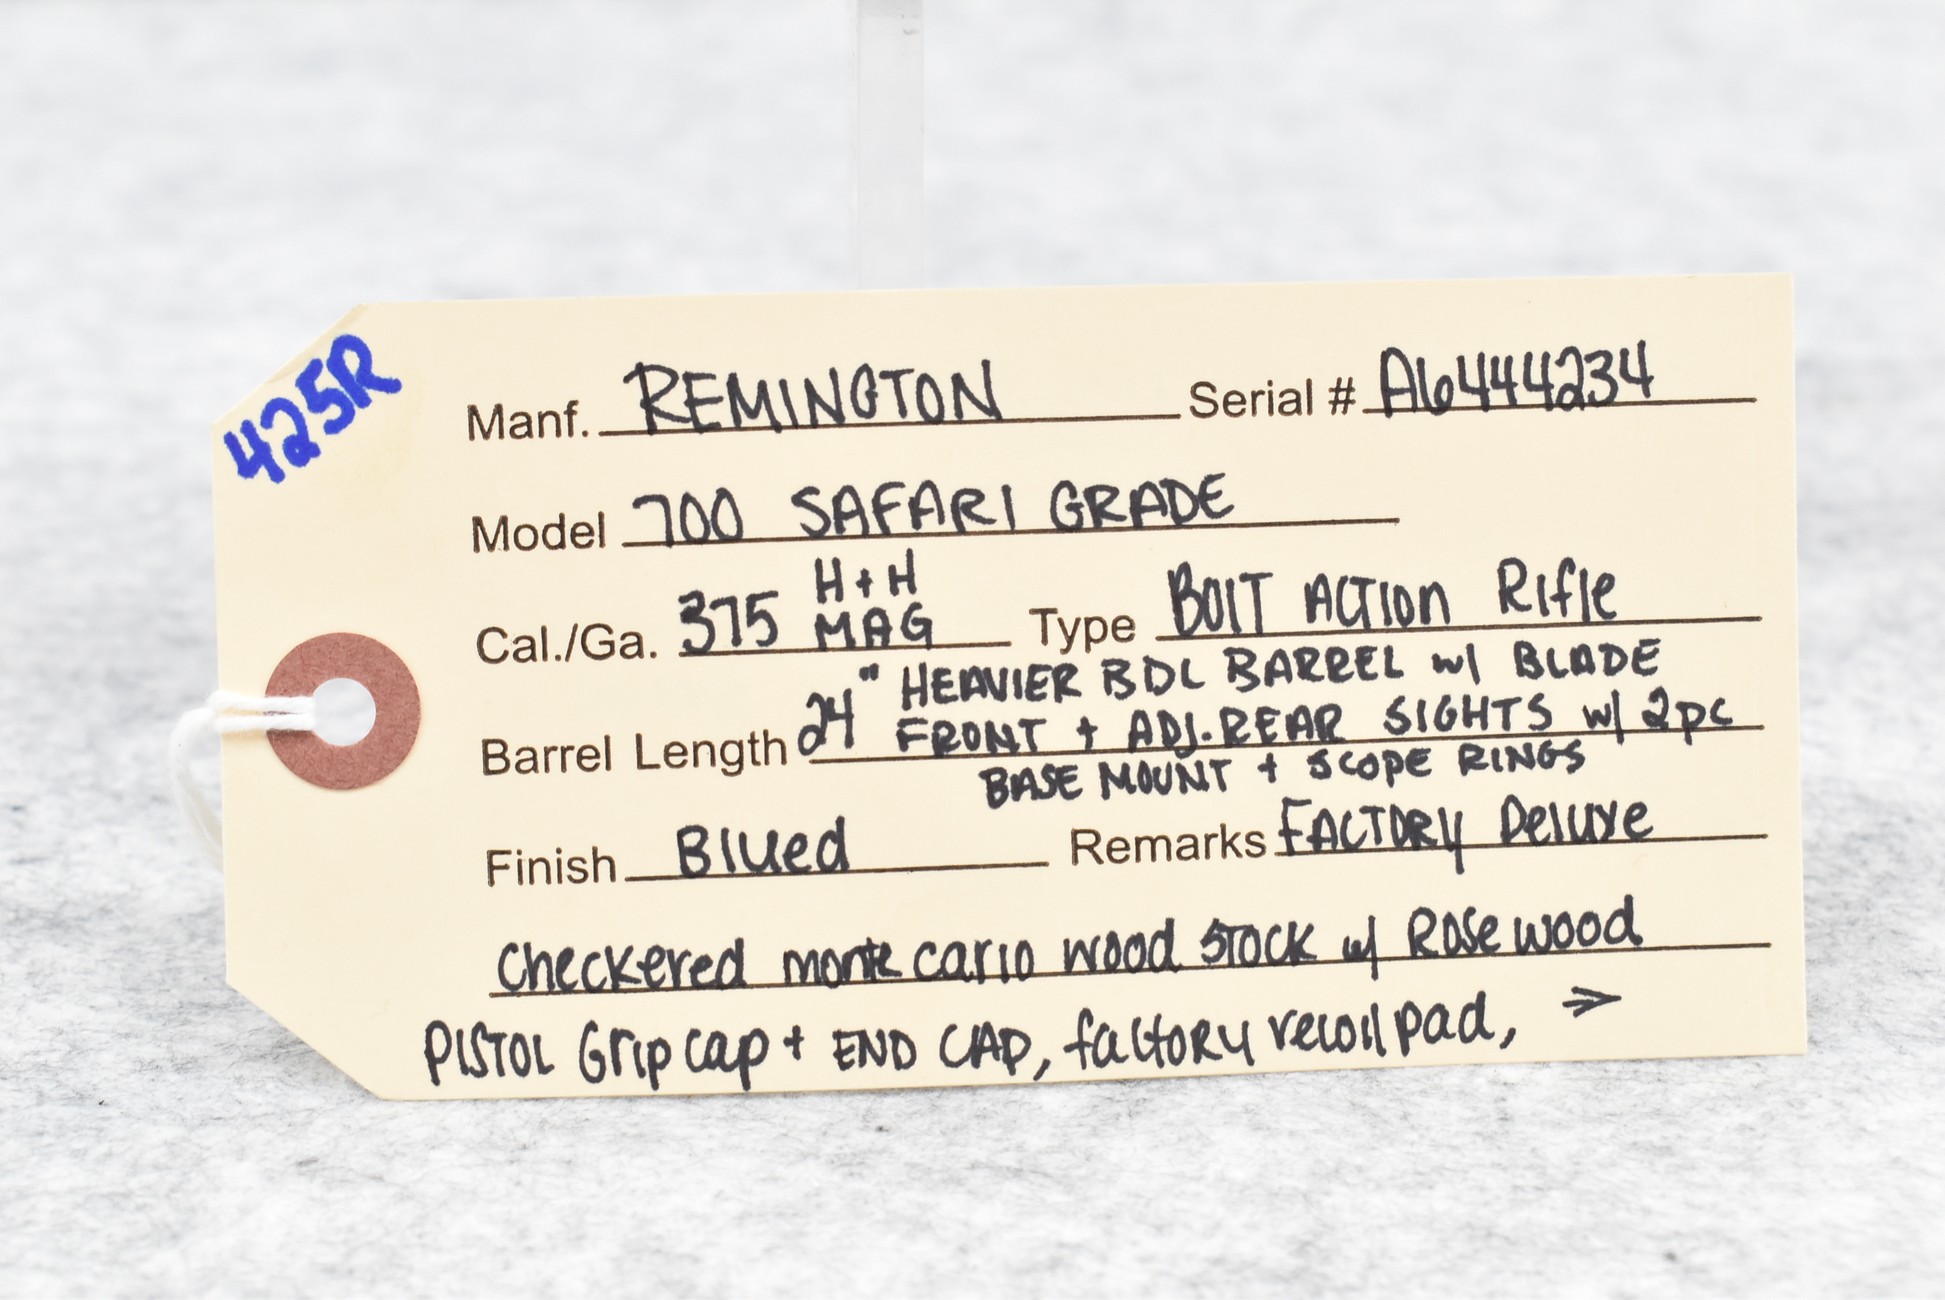 425R
Manf. REMINGTON Serial # A6444234
Model 700 SAFARI GRADE
Cal./Ga. 375 H+H MAG Type BOlT ACTIon Rifle
Barrel Length 24" HEAVIER BDL BARREL w/ BLADE
FRONT + ADJ. REAR SIGHTS w/ 2pc
BASE MOUNT + SCOPE RINGS
Finish Blued Remarks FACTORY Deluxe
Checkered monte carlo wood STOCK w/ Rosewood
PISTOL Grip cap + END CAP, factory recoil pad, →